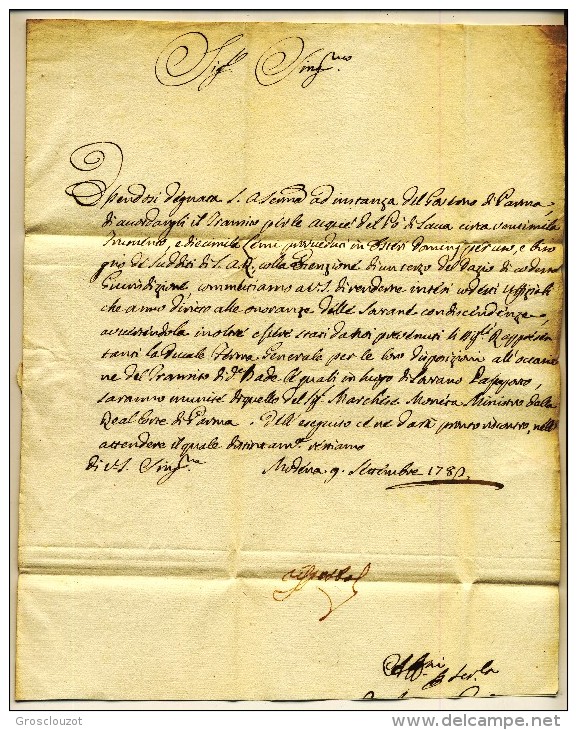 Sig.r Sing.mo
Essendosi degnata S. A. Serma ad instanza del Governo di Parma
di accordargli il Transito per le acque del Po di Sacca circa ventimila
frumento, e diecimila provveduti in Esteri Dominj per uso, e biso
gno de Sudditi di S. A. R., colla Esenzione di un terzo del Dazio di codesta
Giurisdizione commettiamo a V.S. di rendere intesi codesti Uffiziali
che anno diritto alle onoranze della Sovrana condiscendenza,
avvertendola inoltre essere stati da noi prevenuti li Sig.ri Rappresen
tanti la Ducale Ferma Generale per le loro disposizioni all'occasio
ne del Transito di d.e Biade le quali in luogo di Passaporto,
saranno munite di quello del Sig. Marchese Moneta Ministro della
Real Corte di Parma. Dell'eseguito ce ne darà pronto riscontro, nell'
attendere il quale distintam.e restiamo
di V.S. Sing.ma Modena 9. Settembre 1780.
delcampe.net
Grosclouzot